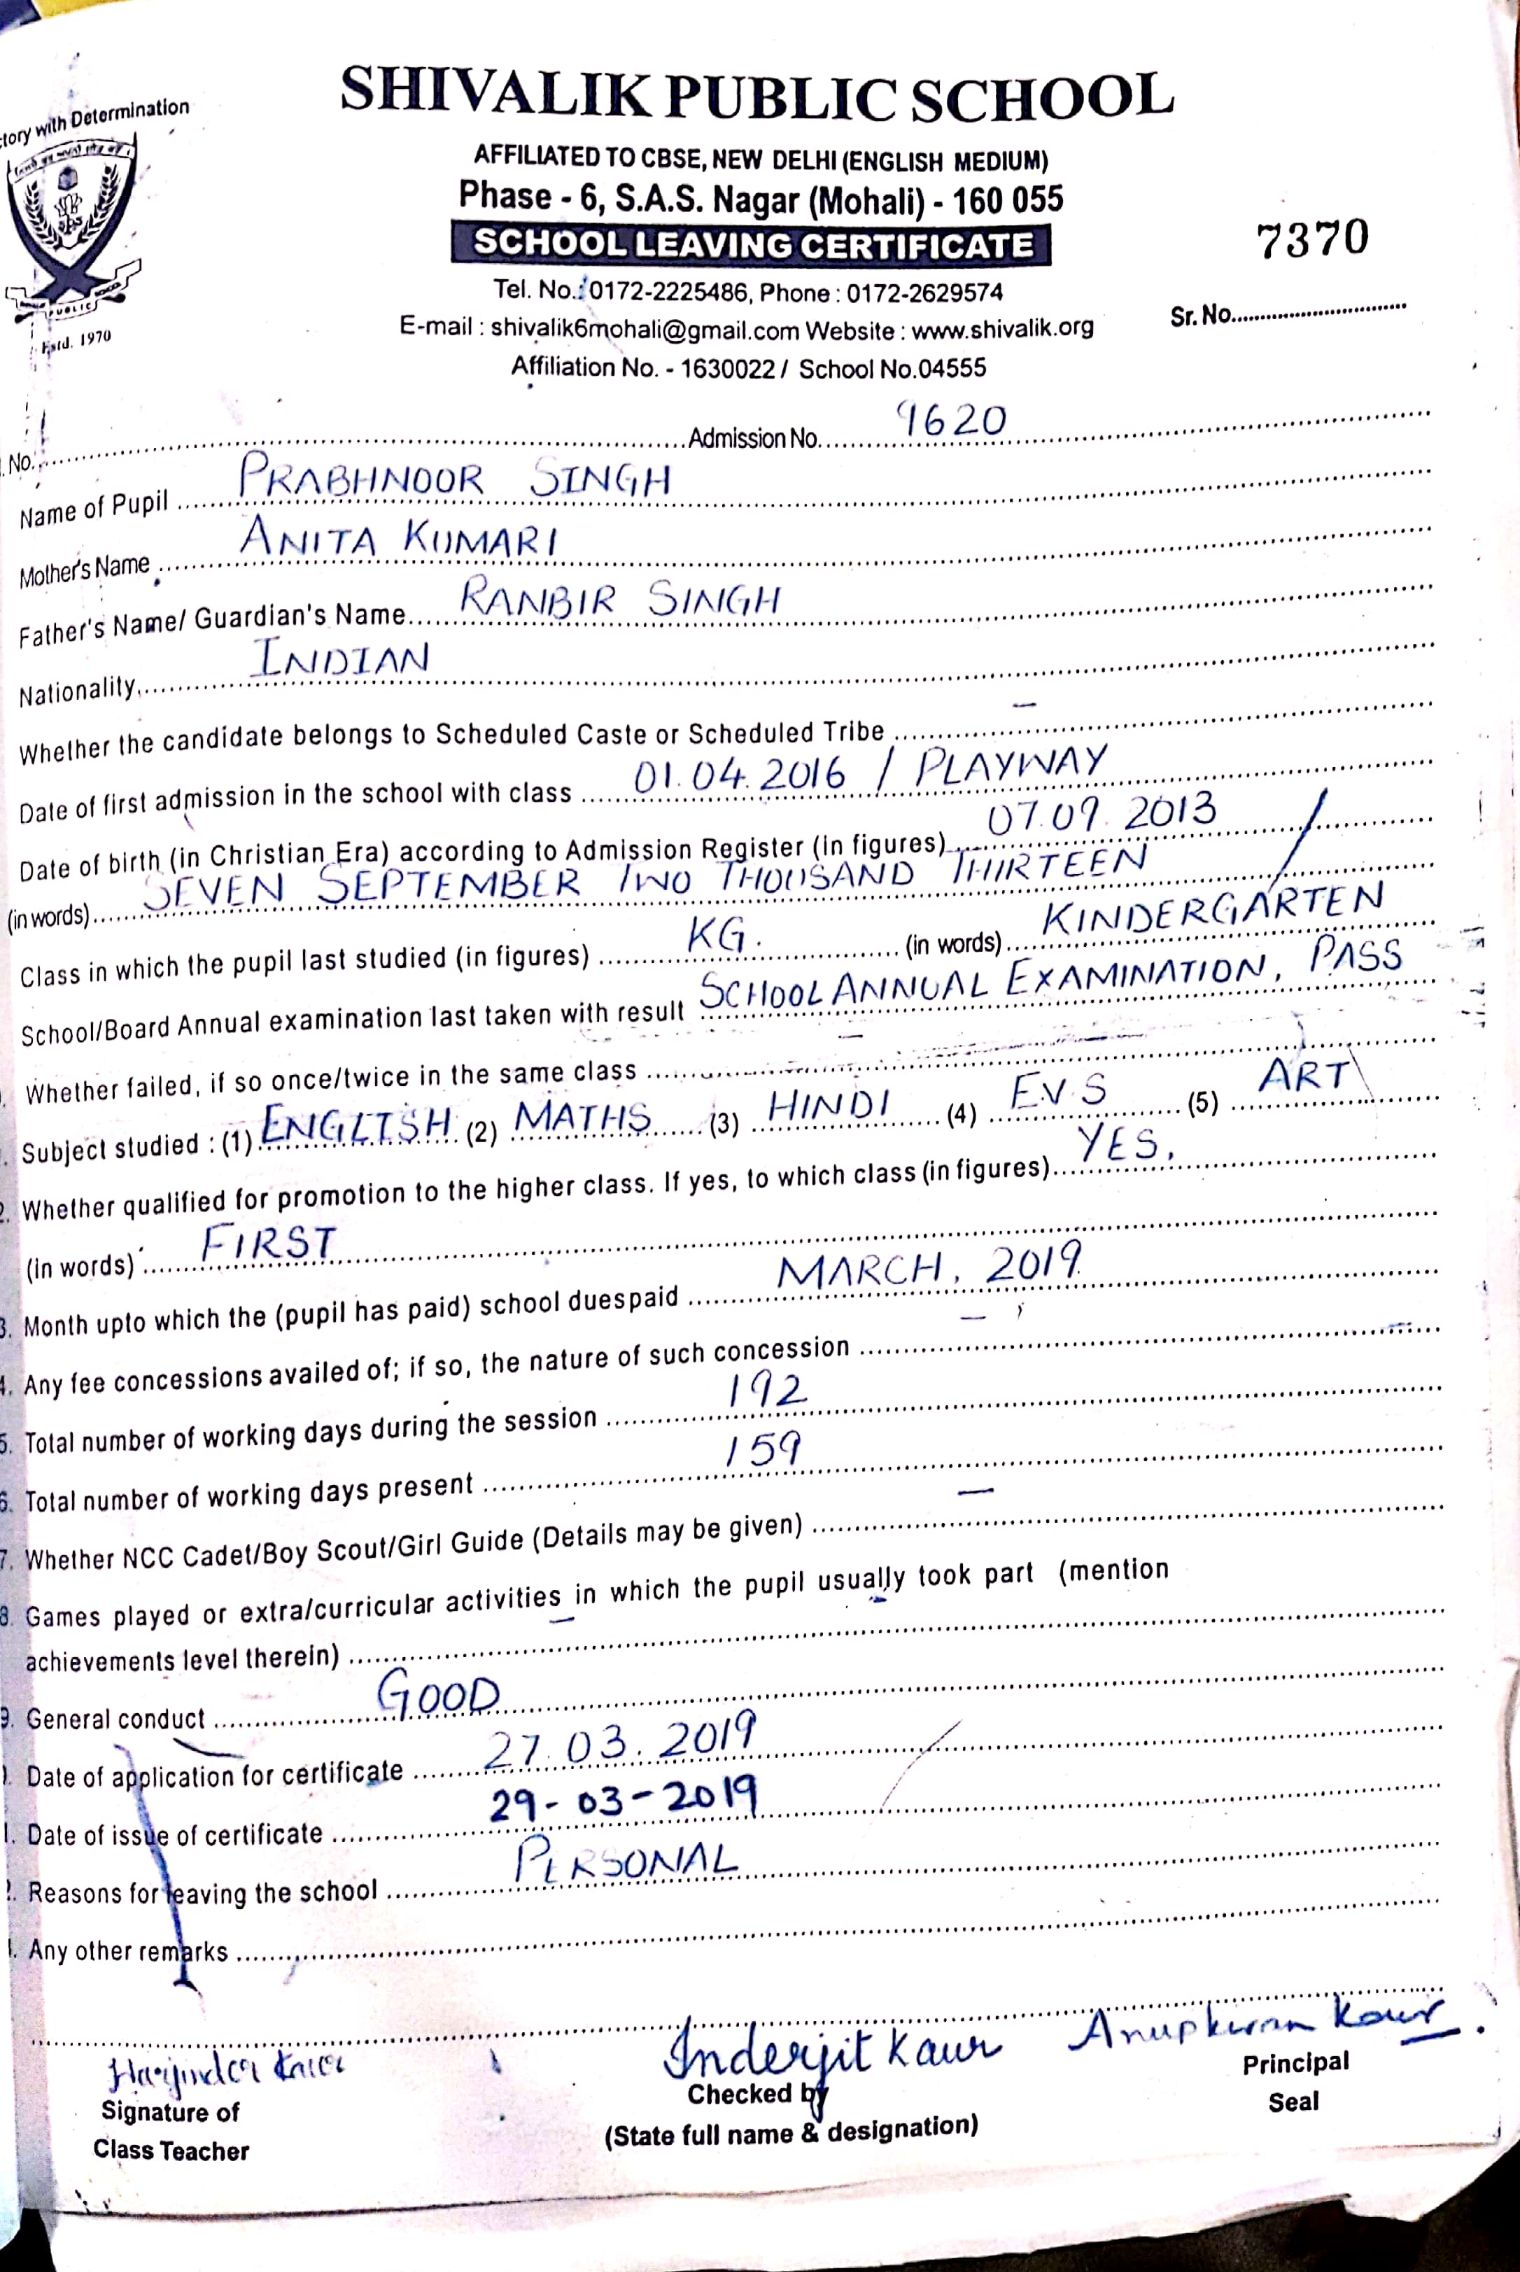 SHIVALIK PUBLIC SCHOOL
tory with Determination
AFFILIATED TO CBSE, NEW DELHI (ENGLISH MEDIUM)
Phase - 6, S.A.S. Nagar (Mohali) - 160 055
SCHOOL LEAVING CERTIFICATE
7370
Tel. No.: 0172-2225486, Phone : 0172-2629574
Sr. No.
E-mail : shivalik6mohali@gmail.com Website : www.shivalik.org
Estd. 1970
Affiliation No. - 1630022 / School No.04555
No. Admission No. 9620
Name of Pupil PRABHNOOR SINGH
Mother's Name ANITA KUMARI
Father's Name/ Guardian's Name RANBIR SINGH
Nationality INDIAN
Whether the candidate belongs to Scheduled Caste or Scheduled Tribe –
Date of first admission in the school with class 01.04.2016 / PLAYWAY
Date of birth (in Christian Era) according to Admission Register (in figures) 07.09.2013
(in words) SEVEN SEPTEMBER TWO THOUSAND THIRTEEN
Class in which the pupil last studied (in figures) KG. (in words) KINDERGARTEN
School/Board Annual examination last taken with result SCHOOL ANNUAL EXAMINATION, PASS
Whether failed, if so once/twice in the same class –
Subject studied : (1) ENGLISH (2) MATHS (3) HINDI (4) E.V.S (5) ART
2. Whether qualified for promotion to the higher class. If yes, to which class (in figures) YES.
(in words) FIRST
3. Month upto which the (pupil has paid) school duespaid MARCH, 2019
4. Any fee concessions availed of; if so, the nature of such concession –
5. Total number of working days during the session 192
6. Total number of working days present 159
7. Whether NCC Cadet/Boy Scout/Girl Guide (Details may be given) –
8. Games played or extra/curricular activities in which the pupil usually took part (mention
achievements level therein) –
9. General conduct GOOD
Date of application for certificate 27.03.2019
Date of issue of certificate 29-03-2019
Reasons for leaving the school PERSONAL
Any other remarks
Harjinder Kaur Inderjit Kaur Anupkiran Kaur
Signature of Checked by Principal
Class Teacher (State full name & designation) Seal